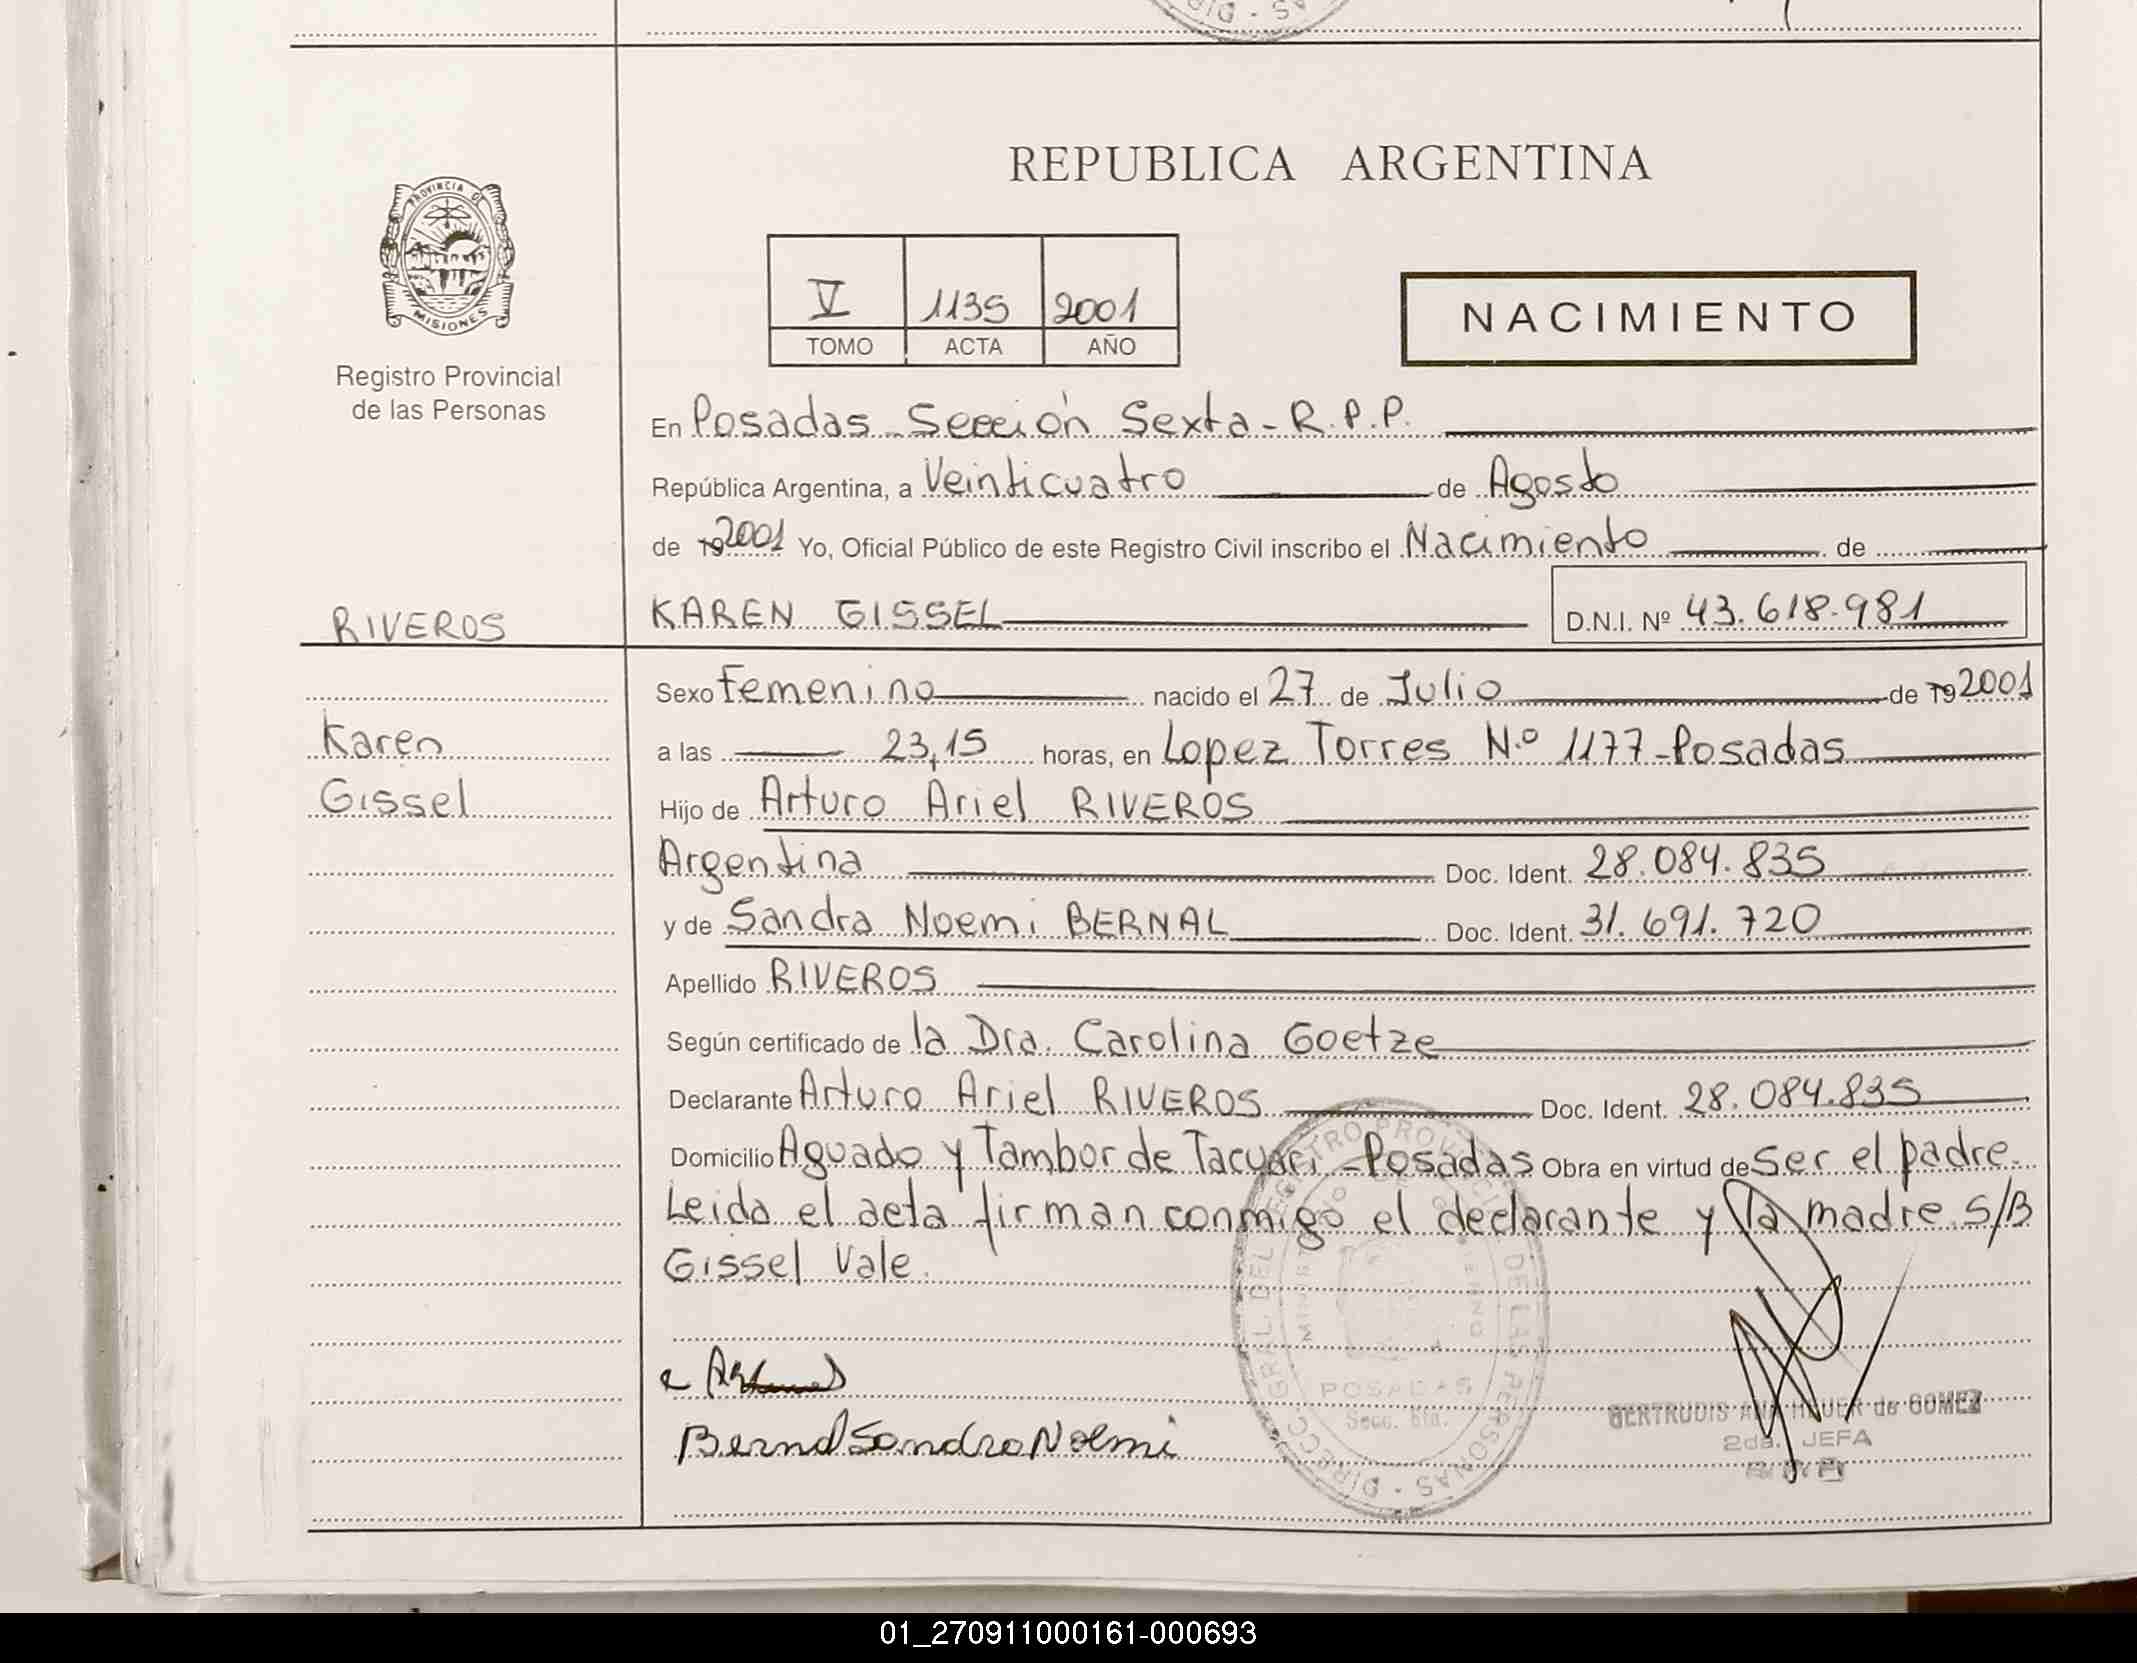 REPUBLICA ARGENTINA
PROVINCIA DE
MISIONES
Registro Provincial
de las Personas
V 1135 2001
TOMO ACTA AÑO
NACIMIENTO
En Posadas Sección Sexta - R.P.P.
República Argentina, a Veinticuatro de Agosto
de 19 2001 Yo, Oficial Público de este Registro Civil inscribo el Nacimiento de
RIVEROS
KAREN GISSEL D.N.I. Nº 43.618.981
Sexo Femenino nacido el 27 de Julio de 19 2001
Karen
a las 23,15 horas, en Lopez Torres N.º 1177 - Posadas
Gissel
Hijo de Arturo Ariel RIVEROS
Argentina Doc. Ident. 28.084.835
y de Sandra Noemi BERNAL Doc. Ident. 31.691.720
Apellido RIVEROS
Según certificado de la Dra. Carolina Goetze
Declarante Arturo Ariel RIVEROS Doc. Ident. 28.084.835
Domicilio Aguado y Tambor de Tacuari - Posadas Obra en virtud de ser el padre.
Leida el acta firman conmigo el declarante y la madre S/B
Gissel Vale.
DIRECC. GRAL. DEL REGISTRO PROVINCIAL DE LAS PERSONAS
POSADAS
Secc. 6ta.
Bernal Sandra Noemi
GERTRUDIS ANA de GOMEZ
2da. JEFA
01_270911000161-000693